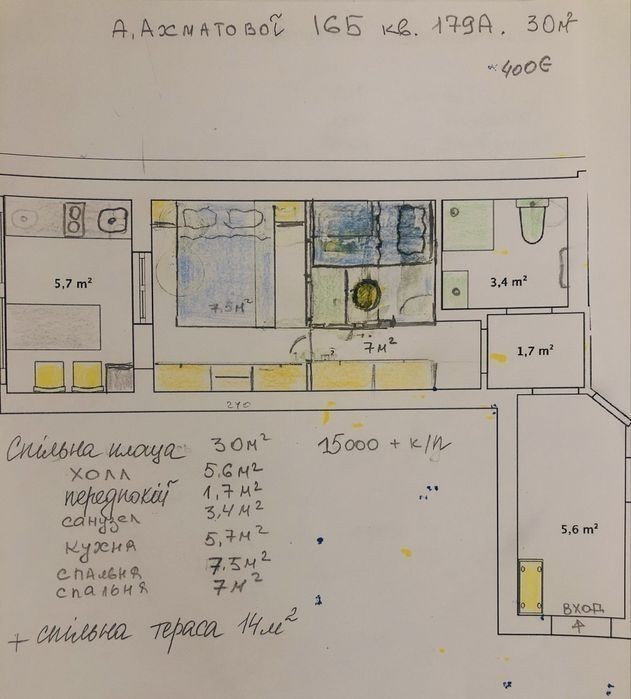 А. Ахматової 165 кв. 179А. 30м²
~400€
5,7 m²
7.5м²
3,4 m²
7м²
1,7 m²
270
Спільна площа 30м² 15000 + к/п
ХОЛЛ 5.6м²
передпокій 1,7м²
санузел 3,4м²
кухня 5,7м²
спальня 7.5м²
спальня 7м²
5,6 m²
ВХОД
+ спільна тераса 14м²